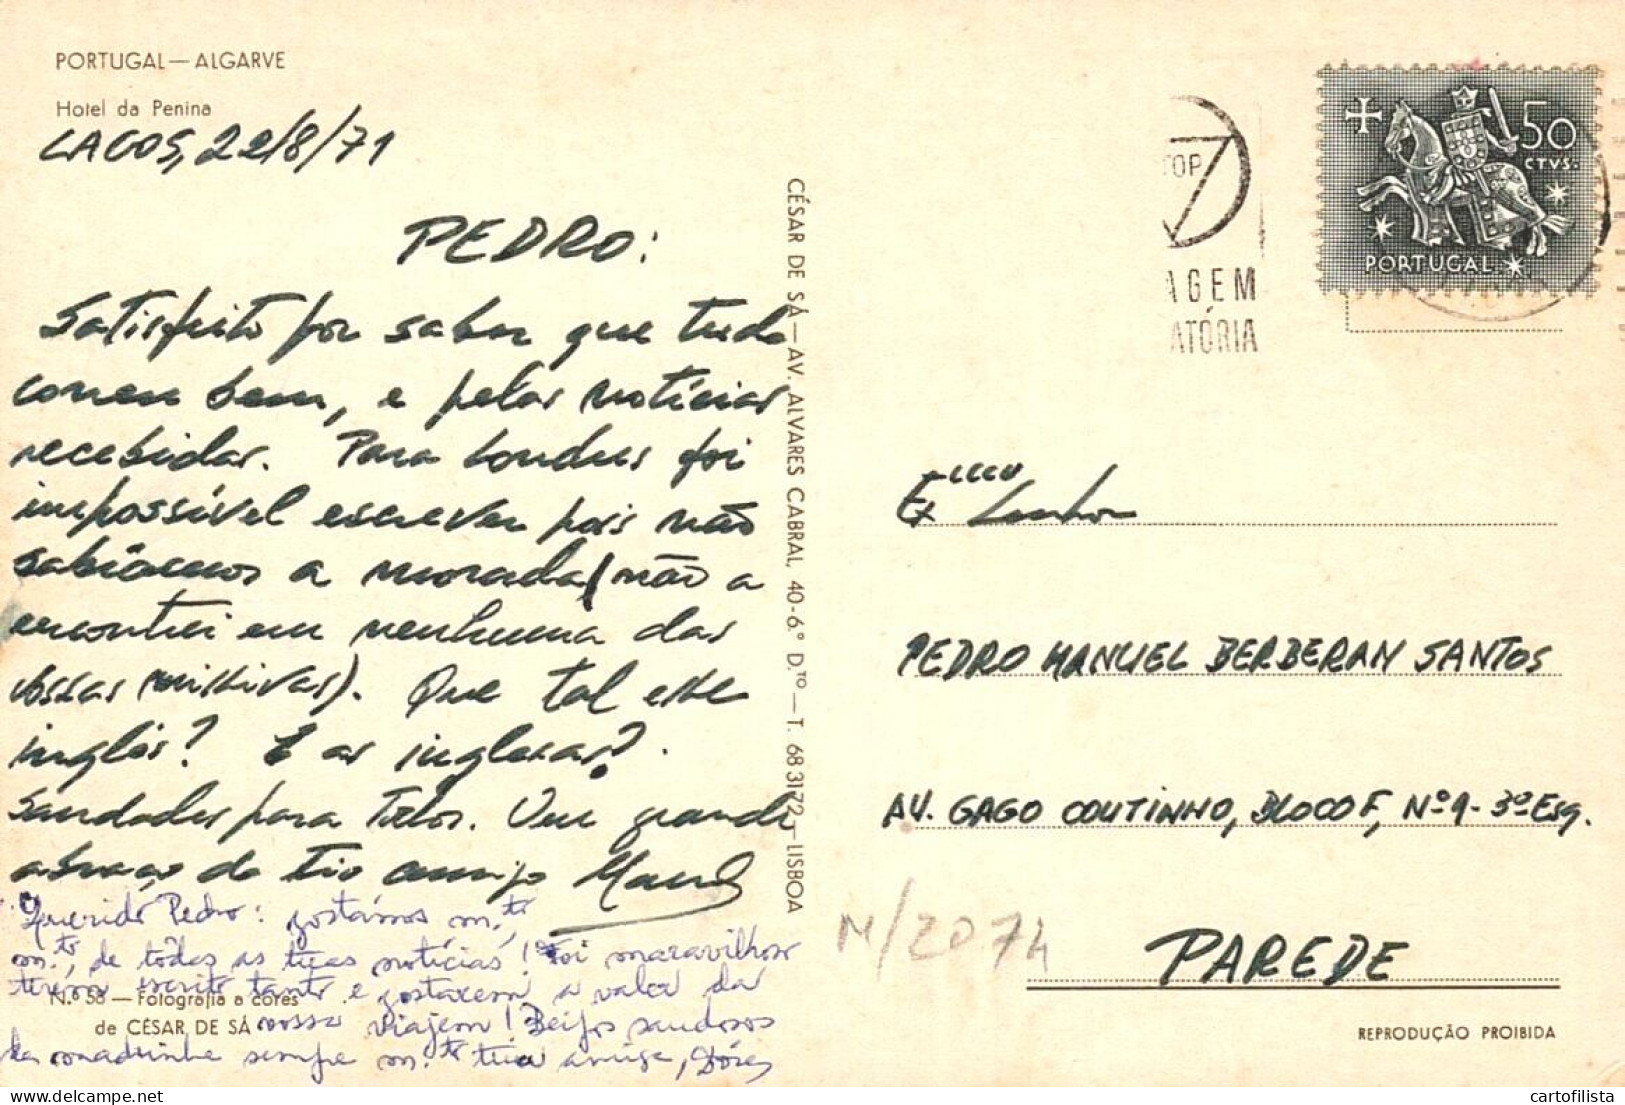 PORTUGAL — ALGARVE
Hotel da Penina
LAGOS, 22/8/71
PEDRO:
Satisfeito por saber que tudo
correu bem, e pelas notícias
recebidas. Para Londres foi
impossível escrever pois não
sabíamos a morada (não a
encontrei em nenhuma das
vossas missivas). Que tal esse
inglês? E as inglesas?
Saudades para Todos. Um grande
abraço do tio amigo
Querido Pedro: gostámos m.to
m.to, de todas as tuas notícias! Foi maravilhoso
terem escrito tanto e gostarem a valer da
vossa viajem! Beijos saudosos
da madrinha sempre m.to tua amiga, Dóres
N.º 58 — Fotografia a côres
de CÉSAR DE SÁ
CÉSAR DE SÁ — AV. ALVARES CABRAL, 40-6.º D.TO — T. 683172 — LISBOA
50
CTVS.
PORTUGAL
TOP
AGEM
ATÓRIA
PEDRO MANUEL BERBERAN SANTOS
AV. GAGO COUTINHO, BLOCO F, Nº 9 - 3º Esq.
PAREDE
M/2074
REPRODUÇÃO PROIBIDA
cartofilista